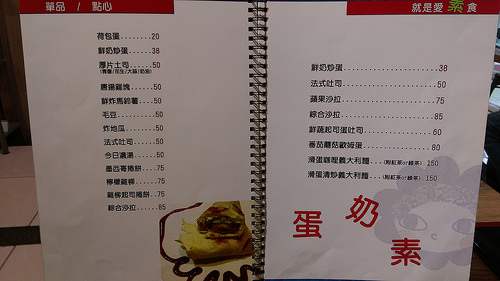 單品 / 點心
荷包蛋........20
鮮奶炒蛋......38
厚片土司......50
(椰香/花生/大蒜/奶油)
唐揚雞塊......50
鮮炸馬鈴薯....50
毛豆..........50
炸地瓜........50
法式吐司......50
今日濃湯......50
墨西哥捲餅....75
檸檬雞柳......75
雞柳起司捲餅..75
綜合沙拉......85
就是愛素食
鮮奶炒蛋..............................38
法式吐司..............................50
蘋果沙拉..............................75
綜合沙拉..............................85
鮮蔬起司蛋吐司........................60
番茄蘑菇歐姆蛋........................80
滑蛋咖哩義大利麵...(附紅茶or綠茶) 150
滑蛋清炒義大利麵...(附紅茶or綠茶) 150
蛋 奶 素